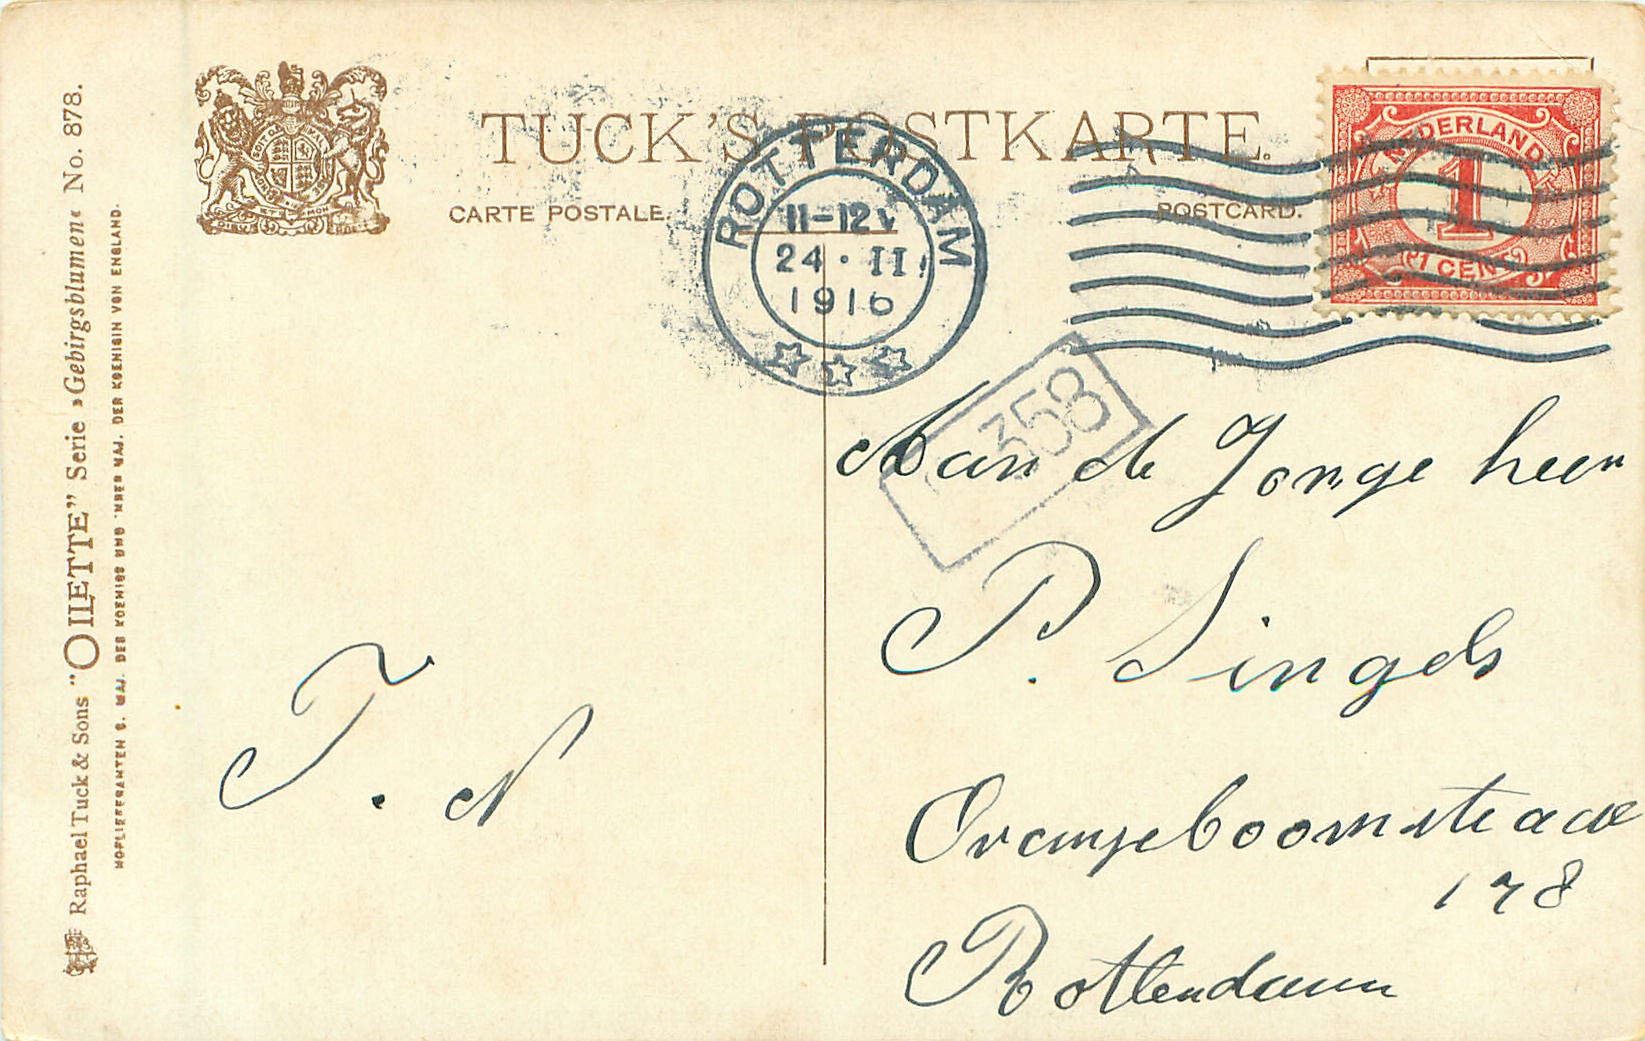 TUCK'S POSTKARTE.
CARTE POSTALE.
POSTCARD.
ROTTERDAM
11-12 V
24 · II
1916
NEDERLAND
1
1 CENT
358
Aan de Jonge heer
P. Singels
Oranjeboomstraat
178
Rotterdam
T. N
Raphael Tuck & Sons "OILETTE" Serie »Gebirgsblumen« No. 878.
HOFLIEFERANTEN S. MAJ. DES KOENIGS UND IHRER MAJ. DER KOENIGIN VON ENGLAND.